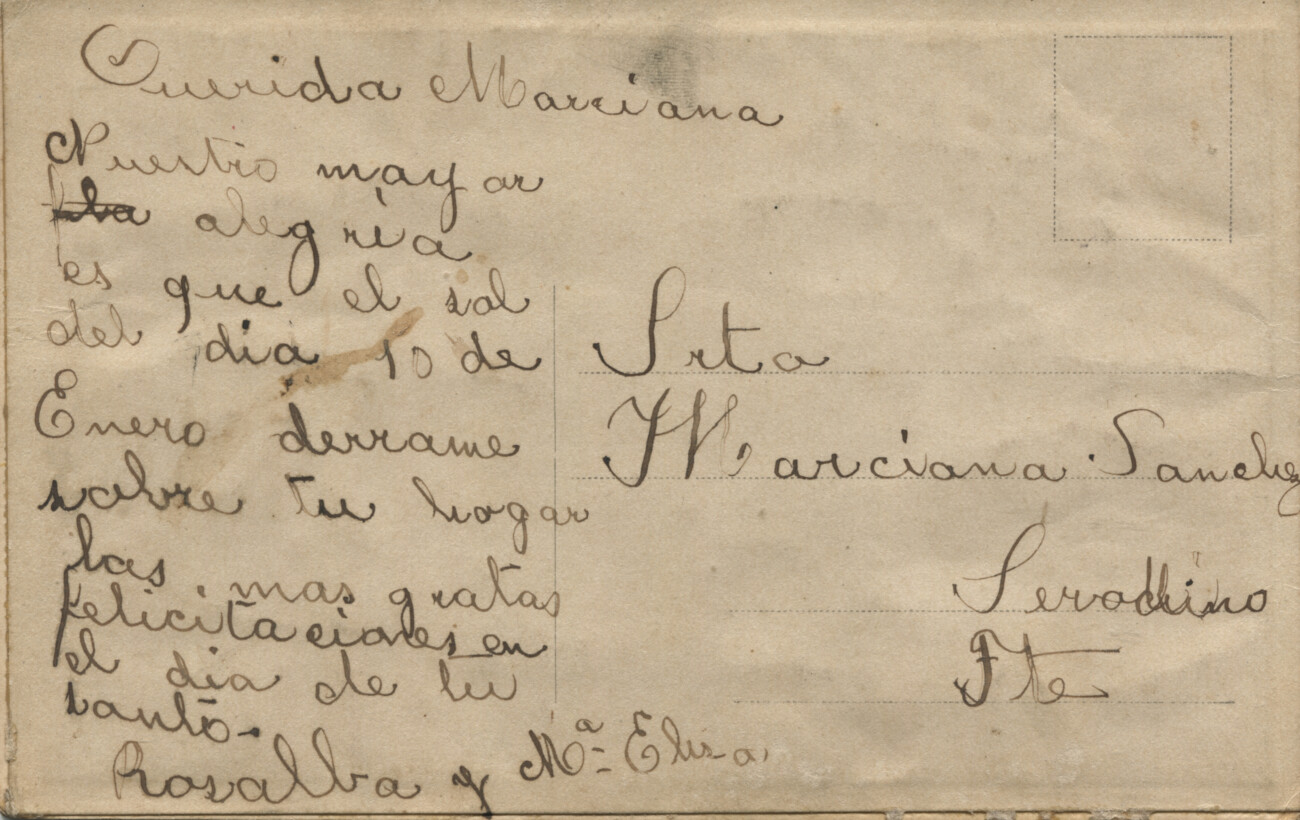 Querida Marciana
Nuestro mayor
alegría
es que el sol
del dia 10 de
Enero derrame
sobre tu hogar
las mas gratas
felicitaciones en
el dia de tu
santo.
Rosalba y Mª Elisa
Srta
Marciana Sanchez
Serodino
Fte